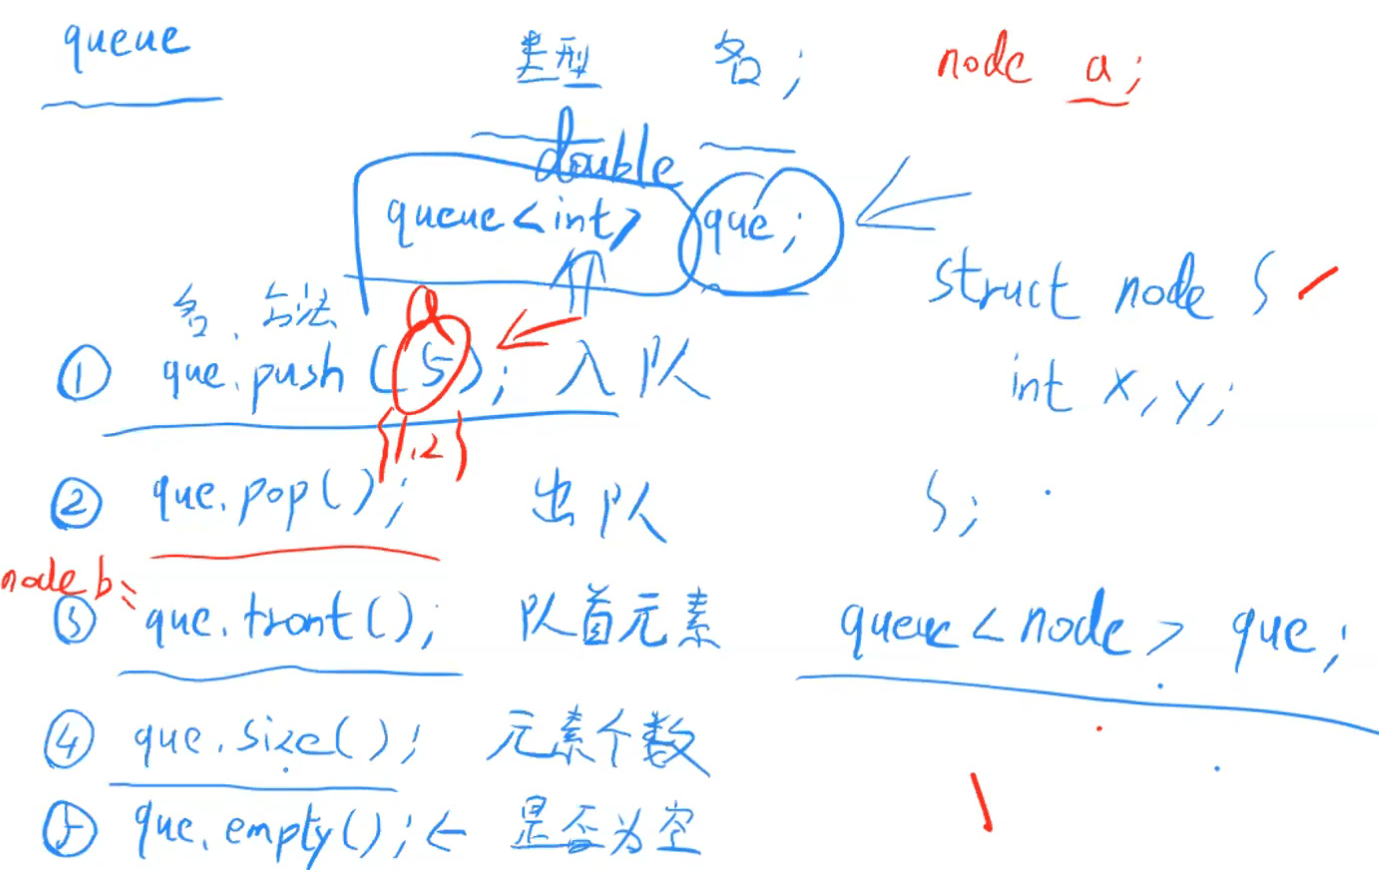 queue
类型 名;
node a;
double
queue<int> que;
struct node {
int x,y;
};
queue<node> que;
名.方法
① que.push(5); 入队
a
{1,2}
② que.pop(); 出队
node b=
③ que.front(); 队首元素
④ que.size(); 元素个数
⑤ que.empty();← 是否为空